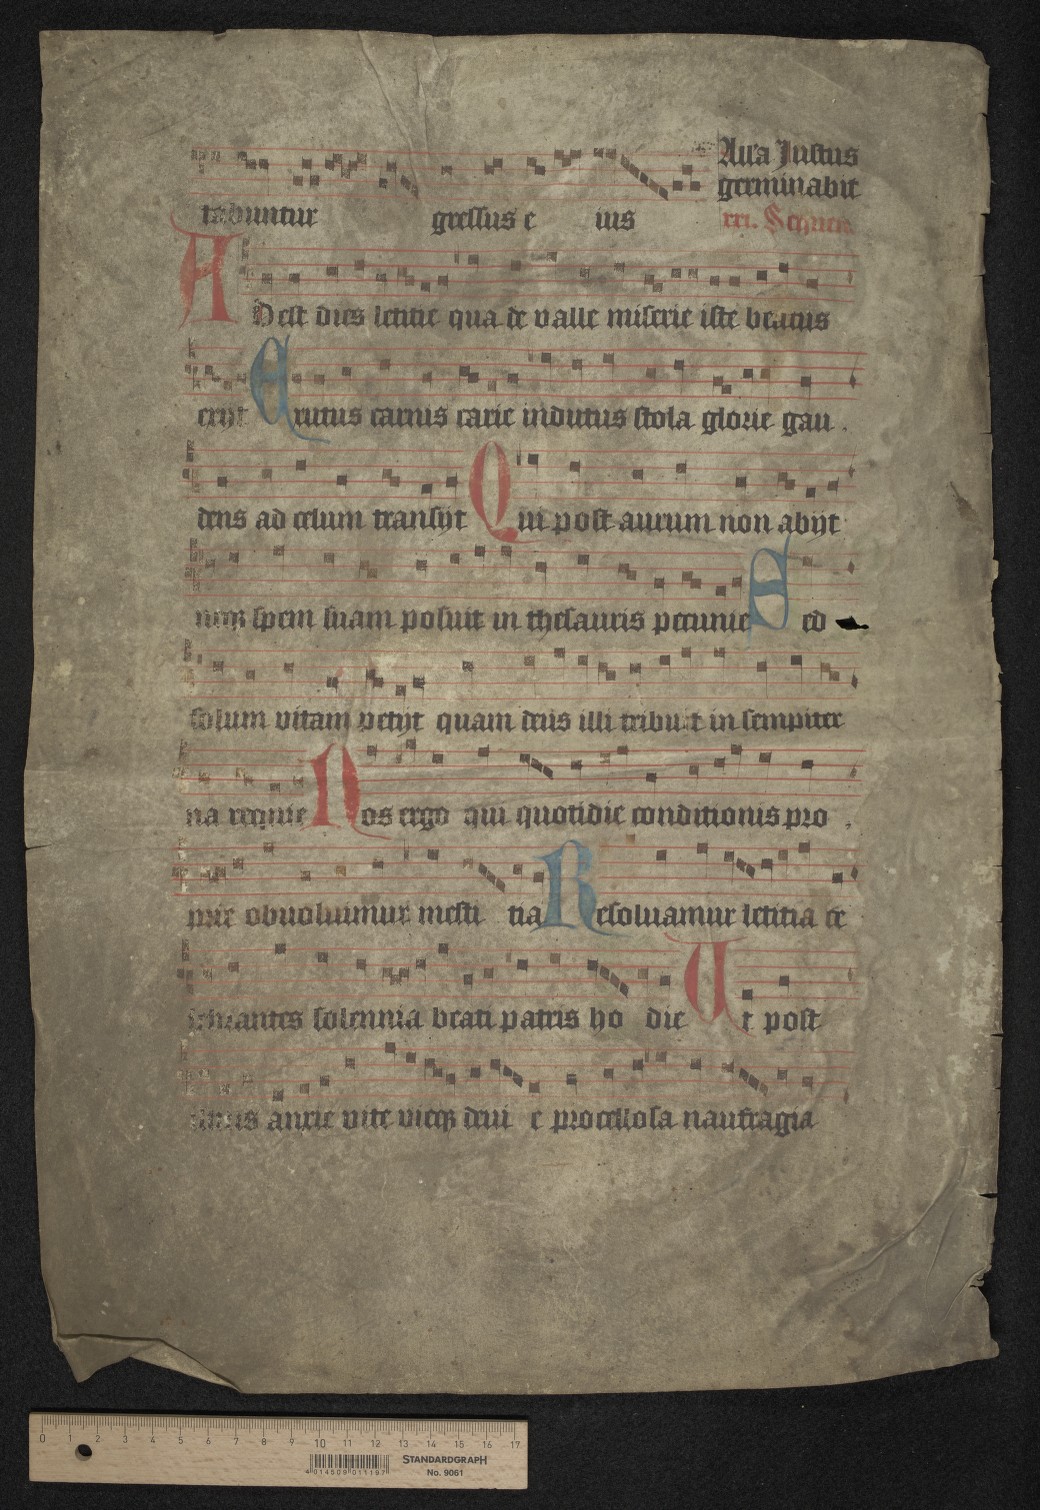 Alla Justus
germinabit
tabuntur gressus e ius
xxi. Sequen
A Dest dies letitie qua de valle miserie iste beatus
exijt Erutus carnis carie indutus stola glorie gau
dens ad celum transijt Qui post aurum non abijt
neqꝫ spem suam posuit in thesauris pecunie Sed
solum vitam petijt quam deus illi tribuit in sempiter
na requie Nos ergo qui quotidie conditionis pro
prie obuoluimur mesti tia Resoluamur letitia ce
lebrantes solennia beati patris ho die Ut post
anxie vite vieqꝫ deui e procellosa naufragia
0 1 2 3 4 5 6 7 8 9 10 11 12 13 14 15 16 17
4 014509 011197
STANDARDGRAPH
No. 9061